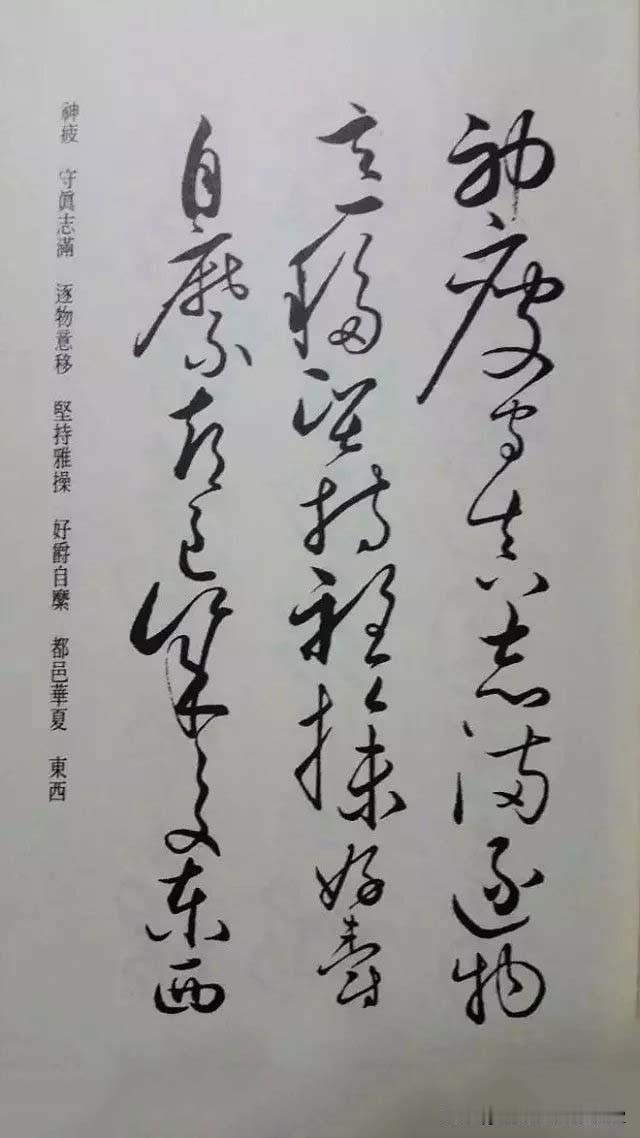 神疲守真志滿逐物
意移堅持雅操好爵
自縻都邑華夏東西
神疲　守眞志滿　逐物意移　堅持雅操　好爵自縻　都邑華夏　東西